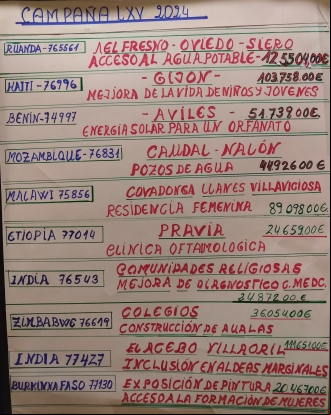 CAMPAÑA LXV 2024
RUANDA-765561 AEL FRESNO-OVIEDO-SIERO
ACCESO AL AGUA POTABLE-12550400€
HAITI-76996 -GIJON- 10375800€
MEJORA DE LA VIDA DE NIÑOS Y JOVENES
BENIN-74997 -AVILES- 5173900€
ENERGIA SOLAR PARA UN ORFANATO
MOZAMBIQUE-76831 CAUDAL-NALÓN
POZOS DE AGUA 4492600€
MALAWI 75856 COVADONGA LLANES VILLAVICIOSA
RESIDENCIA FEMENINA 8909800€
ETIOPIA 77014 PRAVIA 2465900€
CLINICA OFTALMOLOGICA
INDIA 76543 COMUNIDADES RELIGIOSAS
MEJORA DE DIAGNOSTICO C.MEDC.
2487200€
ZIMBABWE 76619 COLEGIOS 3605400€
CONSTRUCCIÓN DE AUALAS
INDIA 77427 EL ACEBO VILLAORIL 11165100€
INCLUSIÓN EN ALDEAS MARGINALES
BURKINNA FASO 77130 EXPOSICIÓN DE PINTURA 2046700€
ACCESO A LA FORMACIÓN DE MUJERES